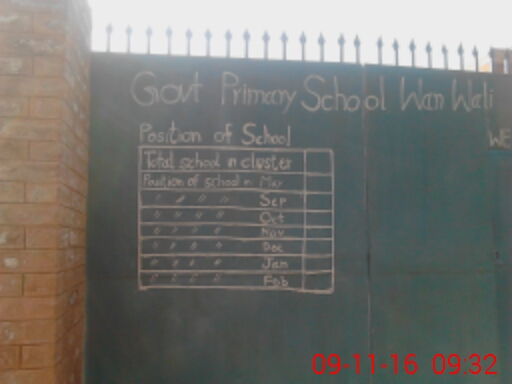 Govt Primary School Wan Wali
WE
Position of School
Total school in cluster
Position of school in Mar
" " " " Sep
" " " " Oct
" " " " Nov
" " " " Dec
" " " " Jam
" " " " Feb
09-11-16 09:32